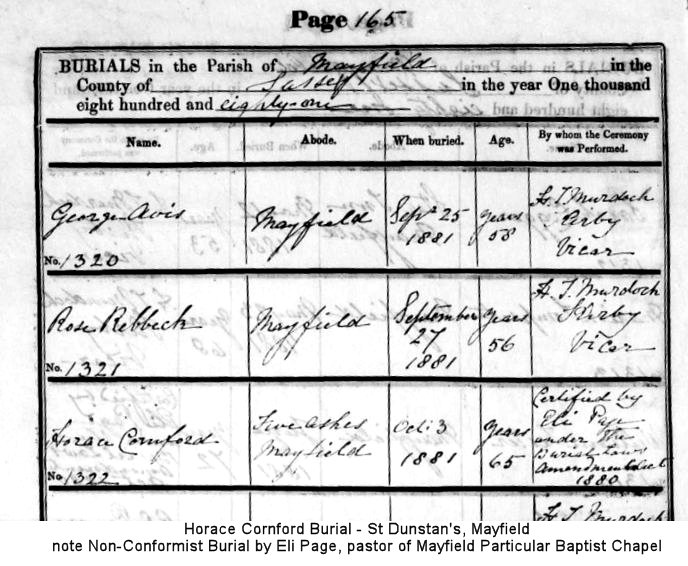 Page 165
BURIALS in the Parish of Mayfield in the
County of Sussex in the year One thousand
eight hundred and eighty-one
Name. Abode. When buried. Age. By whom the Ceremony was Performed.
George Avis
No. 1320
Mayfield
Sept 25
1881
years
58
H. T. Murdoch
Kirby
Vicar
Rose Rebbeck
No. 1321
Mayfield
September
27
1881
years
56
H. T. Murdoch
Kirby
Vicar
Horace Cornford
No. 1322
Five Ashes
Mayfield
Oct: 3
1881
years
65
Certified by
Eli Page
under the
Burial Laws
Amendment Act
1880
Horace Cornford Burial - St Dunstan's, Mayfield
note Non-Conformist Burial by Eli Page, pastor of Mayfield Particular Baptist Chapel